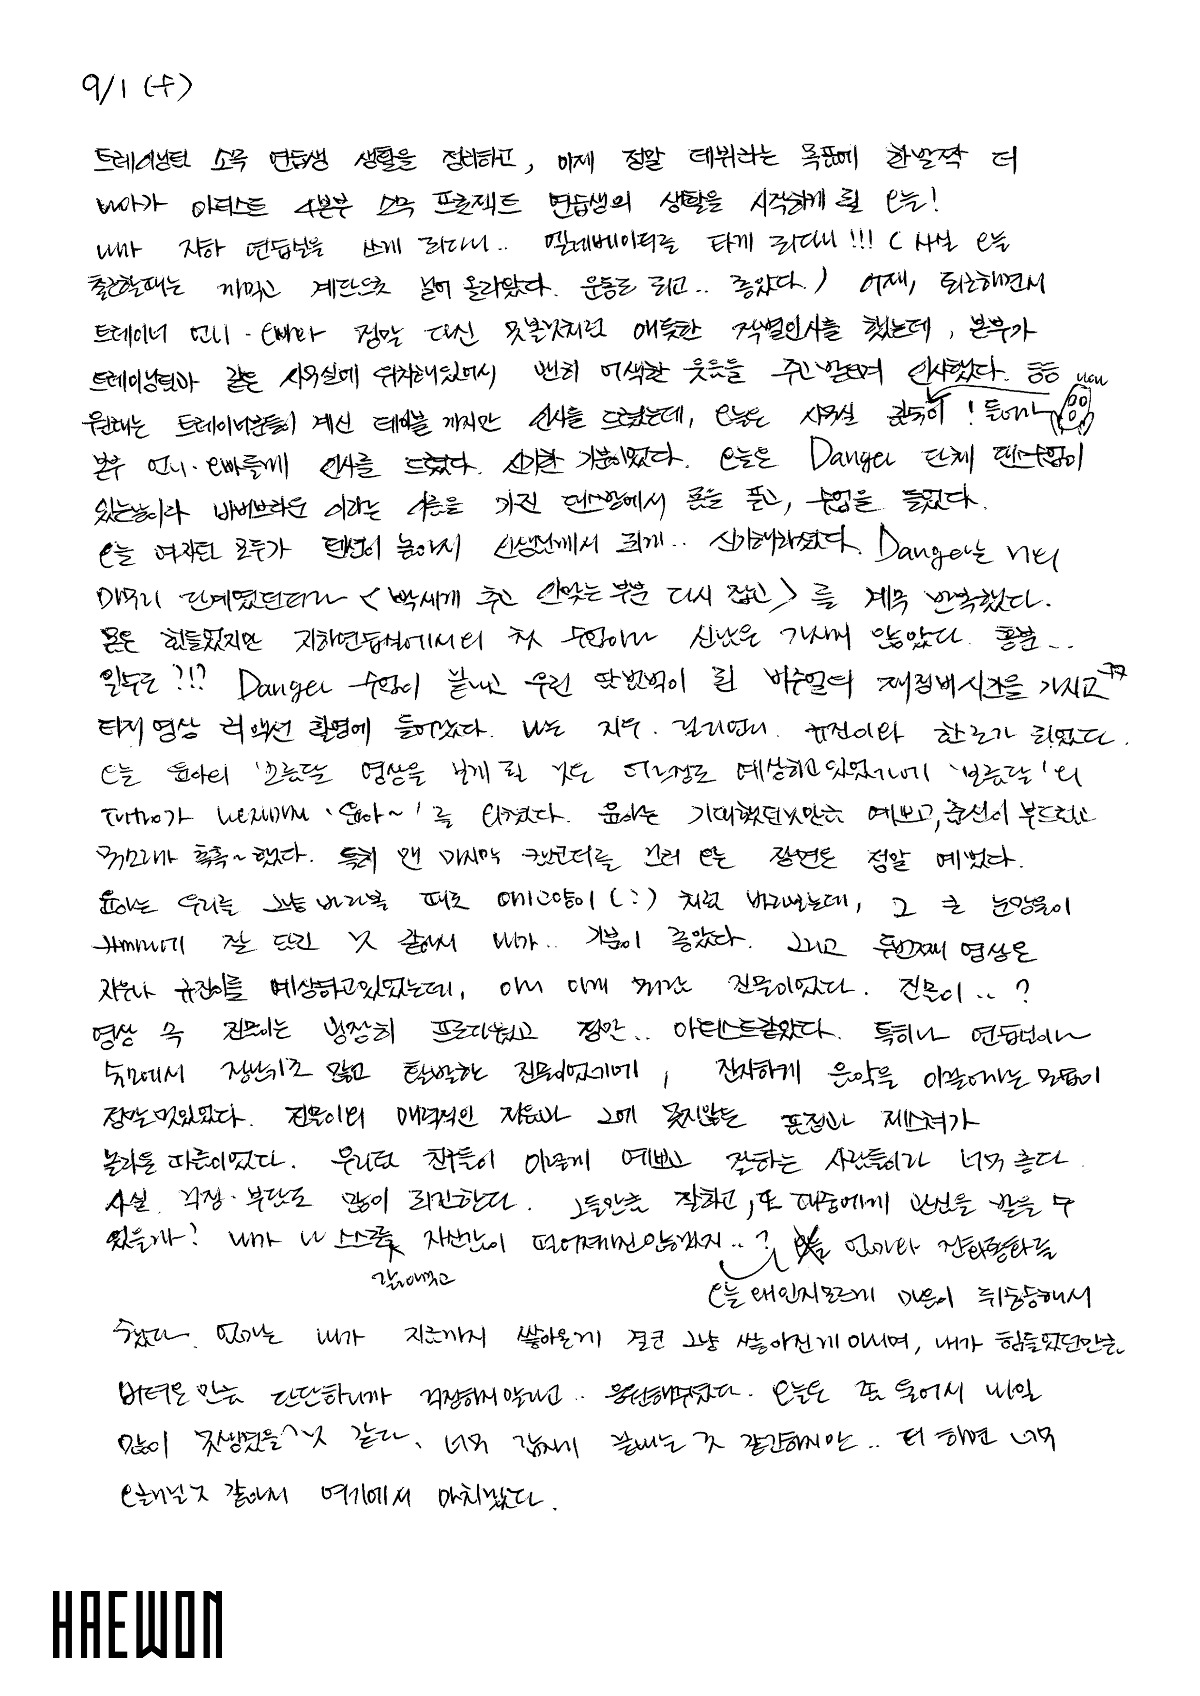 9/1 (수)
트레이닝팀 소속 연습생 생활을 정리하고, 이제 정말 데뷔라는 목표에 한 발짝 더
나아가 아티스트 4본부 소속 프로젝트 연습생의 생활을 시작하게 될 오늘!
내가 지하 연습실을 쓰게 되다니.. 엘레베이터를 타게 되다니!!! ( 사실 오늘
출근할때는 까먹고 계단으로 걸어 올라왔다. 운동도 되고.. 좋았다.) 어제, 퇴근하면서
트레이너 언니·오빠와 정말 다신 못볼것처럼 애틋한 작별인사를 했는데, 본부가
트레이닝팀과 같은 사무실에 위치해있어서 괜히 어색한 웃음을 주고받으며 인사했다. ㅎㅎ
원래는 트레이너분들이 계신 테이블 까지만 인사를 드렸는데, 오늘은 사무실 깊숙이! 들어가
본부 언니·오빠들께 인사를 드렸다. 신기한 기분이었다. 오늘은 Danger 단체 댄스수업이
있는날이라 바비브라운 이라는 이름을 가진 댄스방에서 몸을 풀고, 수업을 들었다.
오늘 여자팀 모두가 텐션이 높아서 선생님께서 되게.. 신기해하셨다. Danger는 거의
마무리 단계였던터라 <빡세게 추고 안맞는 부분 다시 잡고> 를 계속 반복했다.
몸은 힘들었지만 지하연습실에서의 첫 수업이라 신남은 가시지 않았다. 흥분...
일수도?!? Danger 수업이 끝나고 우린 땀범벅이 된 비주얼의 재정비시간을 가지고 ㅋㅋ
티저 영상 리액션 촬영에 들어갔다. 나는 지우. 릴리언니. 규진이와 한조가 되었다.
오늘 윤아의 '보름달' 영상을 보게 될 것은 어느정도 예상하고있었기에 '보름달'의
intro가 나오자마자 '윤아~' 를 외쳤다. 윤아는 기대했던것만큼 예쁘고, 춤선이 부드럽고
목소리가 촉촉~했다. 특히 맨 마지막 캠코더를 끄러 오는 장면은 정말 예뻤다.
윤아는 우리를 그냥 바라볼 때도 아기고양이 (:) 처럼 바라보는데, 그 큰 눈망울이
카메라에 잘 담긴 것 같아서 내가.. 기분이 좋았다. 그리고 두번째 영상은
지우나 규진이를 예상하고있었는데, 아니 이게 뭐람 진솔이었다. 진솔이..?
영상 속 진솔이는 굉장히 프로다웠고 정말.. 아티스트같았다. 특히나 연습실이나
숙소에서 장난기도 많고 털털한 진솔이었기에, 진지하게 음악을 이끌어가는 모습이
정말 멋있었다. 진솔이의 매력적인 자음과 그에 못지않는 표정과 제스처가
놀라울 따름이었다. 우리팀 친구들이 이렇게 예쁘고 잘하는 사람들이라 너무 좋다.
사실 걱정·부담도 많이 되긴한다. 그들만큼 잘하고, 또 대중에게 관심을 받을 수
있을까? 내가 나 스스로 갉아먹고 자신감이 떨어져버린건아닐지..? 오늘 왜인지모르게 마음이 뒤숭숭해서 언니와 전화통화를
했다. 언니는 내가 지금까지 쌓아온게 결코 그냥 쌓아진게 아니며, 내가 힘들었던만큼
버텨온 만큼 단단하니까 걱정하지말라고.. 응원해주었다. 오늘은 또 울어서 내일
많이 못생겼을 것 같다. 너무 갑자기 끝내는 것 같긴하지만.. 더 하면 너무
오래걸릴 것 같아서 여기에서 마치겠다.
HAEWON